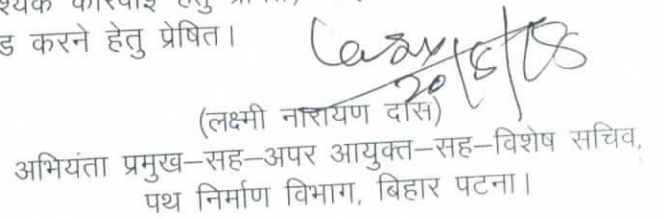 श्यक कार्रवाई हेतु प्रेषित,
ड करने हेतु प्रेषित।
20/6/18
(लक्ष्मी नारायण दास)
अभियंता प्रमुख–सह–अपर आयुक्त–सह–विशेष सचिव,
पथ निर्माण विभाग, बिहार पटना।